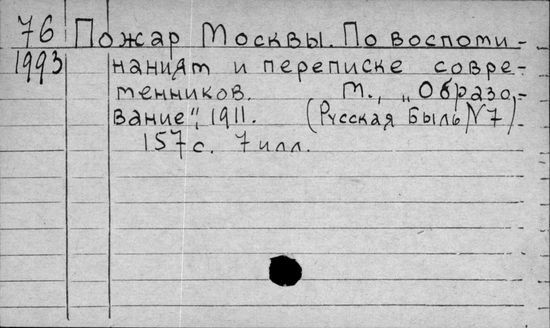 76 Пожар Москвы. По воспоми-
1993 наниям и переписке совре-
менников. М., „Образо-
вание", 1911. (Русская быль N7)
157 с. 7 илл.